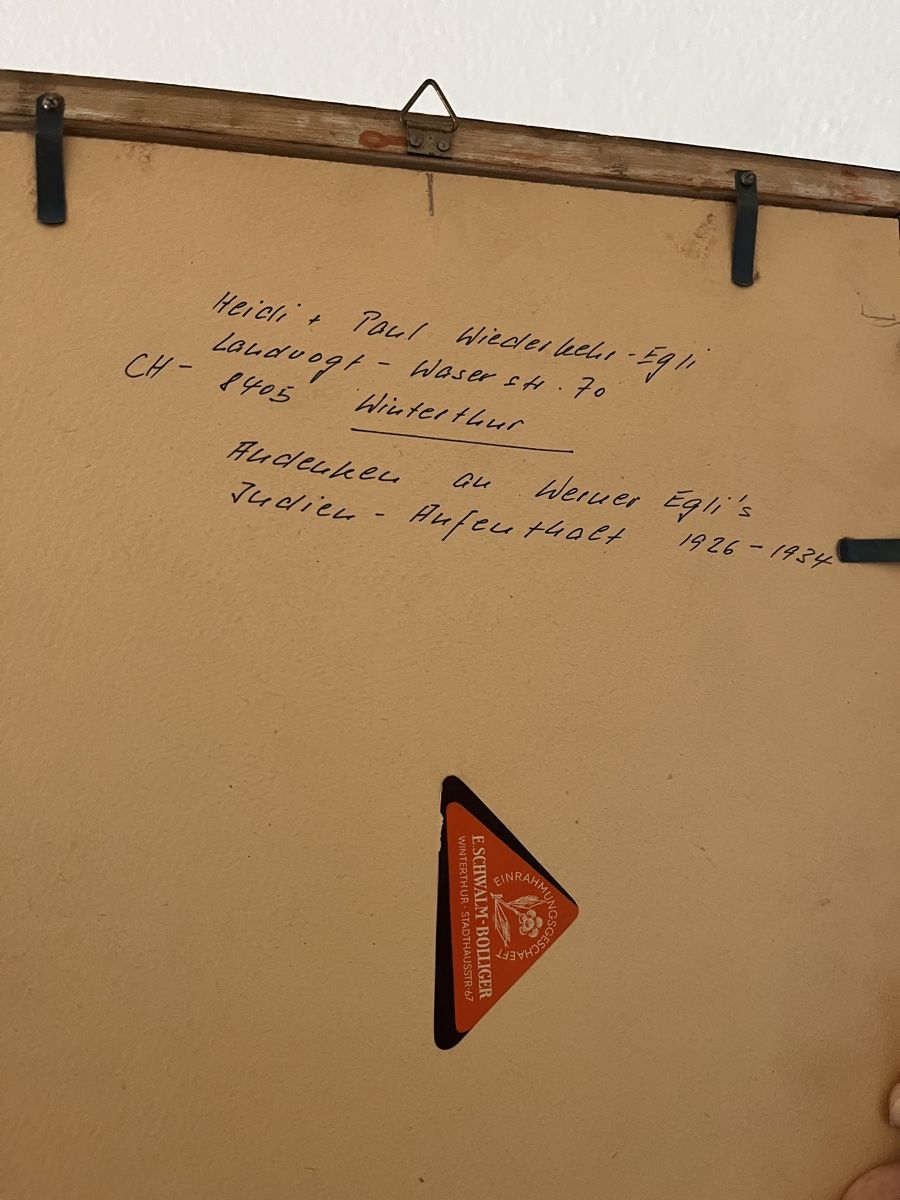 Heidi + Paul Wiederkehr-Egli
Landvogt-Waserstr. 70
CH- 8405 Winterthur
Andenken an Werner Egli's
Indien-Aufenthalt 1926-1934
EINRAHMUNGSGESCHAEFT
E. SCHWALM-BOLLIGER
WINTERTHUR · STADTHAUSSTR. 67